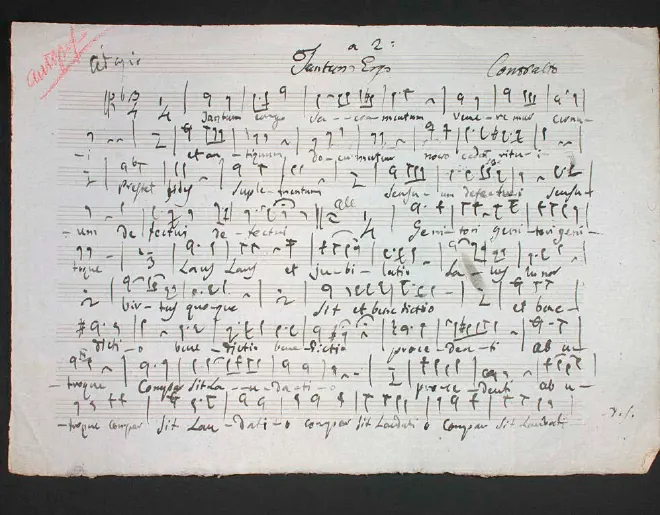 a 2:
autogr
Tantum Ergo
Contralto
Tantum ergo Sa - - cra - mentum Vene - re mur cernu -
i et an - tiquum do - cu mentum novo cedat ritu - i
prestet fides suple - mentum Sensu - um defectui Sensu -
um de fectui de - fectui all Geni - tori geni - tori geni -
toque Laus Laus et ju - bi - latio Sa - lus honor
vir - tus quo - que Sit et bene dictio et bene -
dicti - o bene - dictio bene - dictio proce - den - ti ab u -
troque Compar Sit La - u - dati - o proce - denti ab u -
troque compar Sit Lau - dati - o compar sit Laudati o Compar Sit Laudati